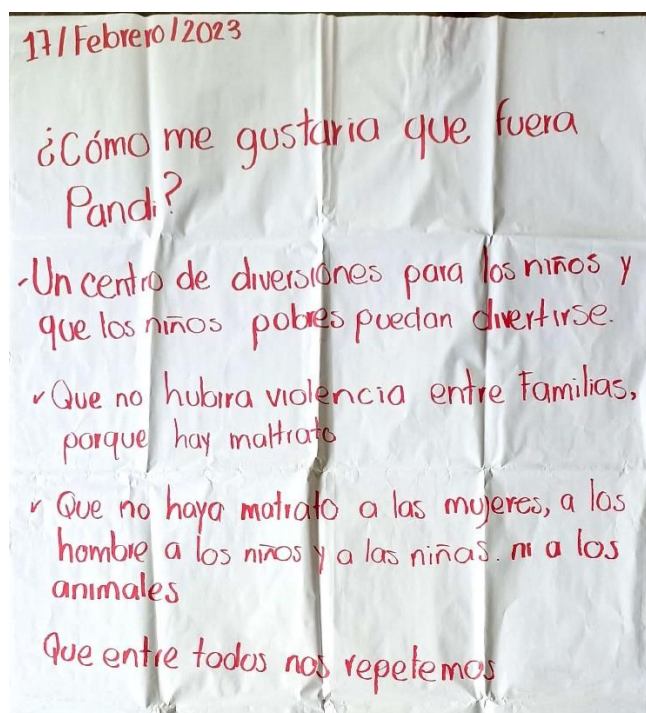 17/Febrero/2023
¿Cómo me gustaria que fuera
Pandi?
-Un centro de diversiones para los niños y
que los niños pobres puedan divertirse.
✓ Que no hubira violencia entre Familias,
porque hay maltrato
✓ Que no haya matrato a las mujeres, a los
hombre a los niños y a las niñas. ni a los
animales
Que entre todos nos repetemos